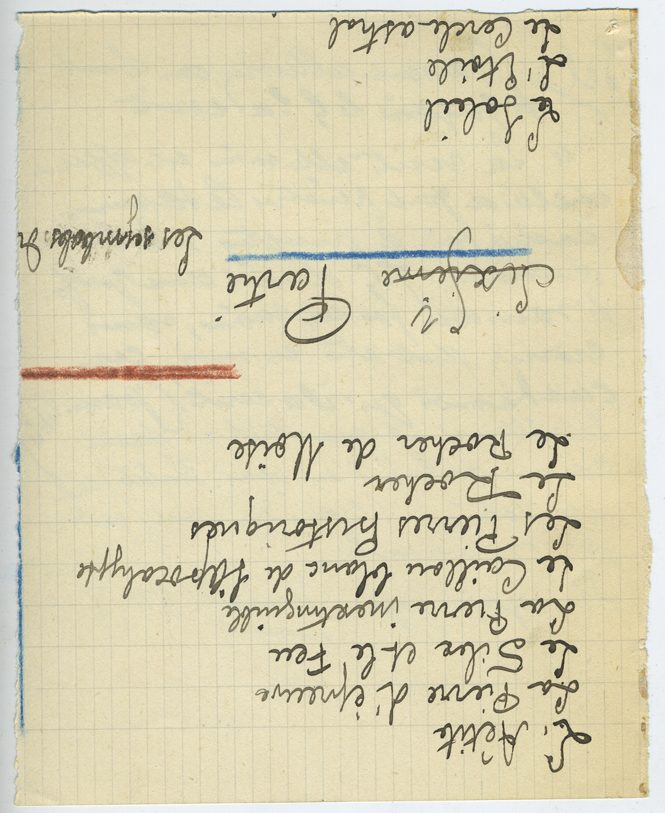 L'Aétite
La Pierre d'épreuve
Le Silex et le Feu
La Pierre inextinguible
Le Caillou blanc de l'Apocalypse
Les Pierres historiques
Le Rocher
Le Rocher de Moïse
Sixième Partie
Les symboles
Le Soleil
L'Etoile
Le Cercle astral